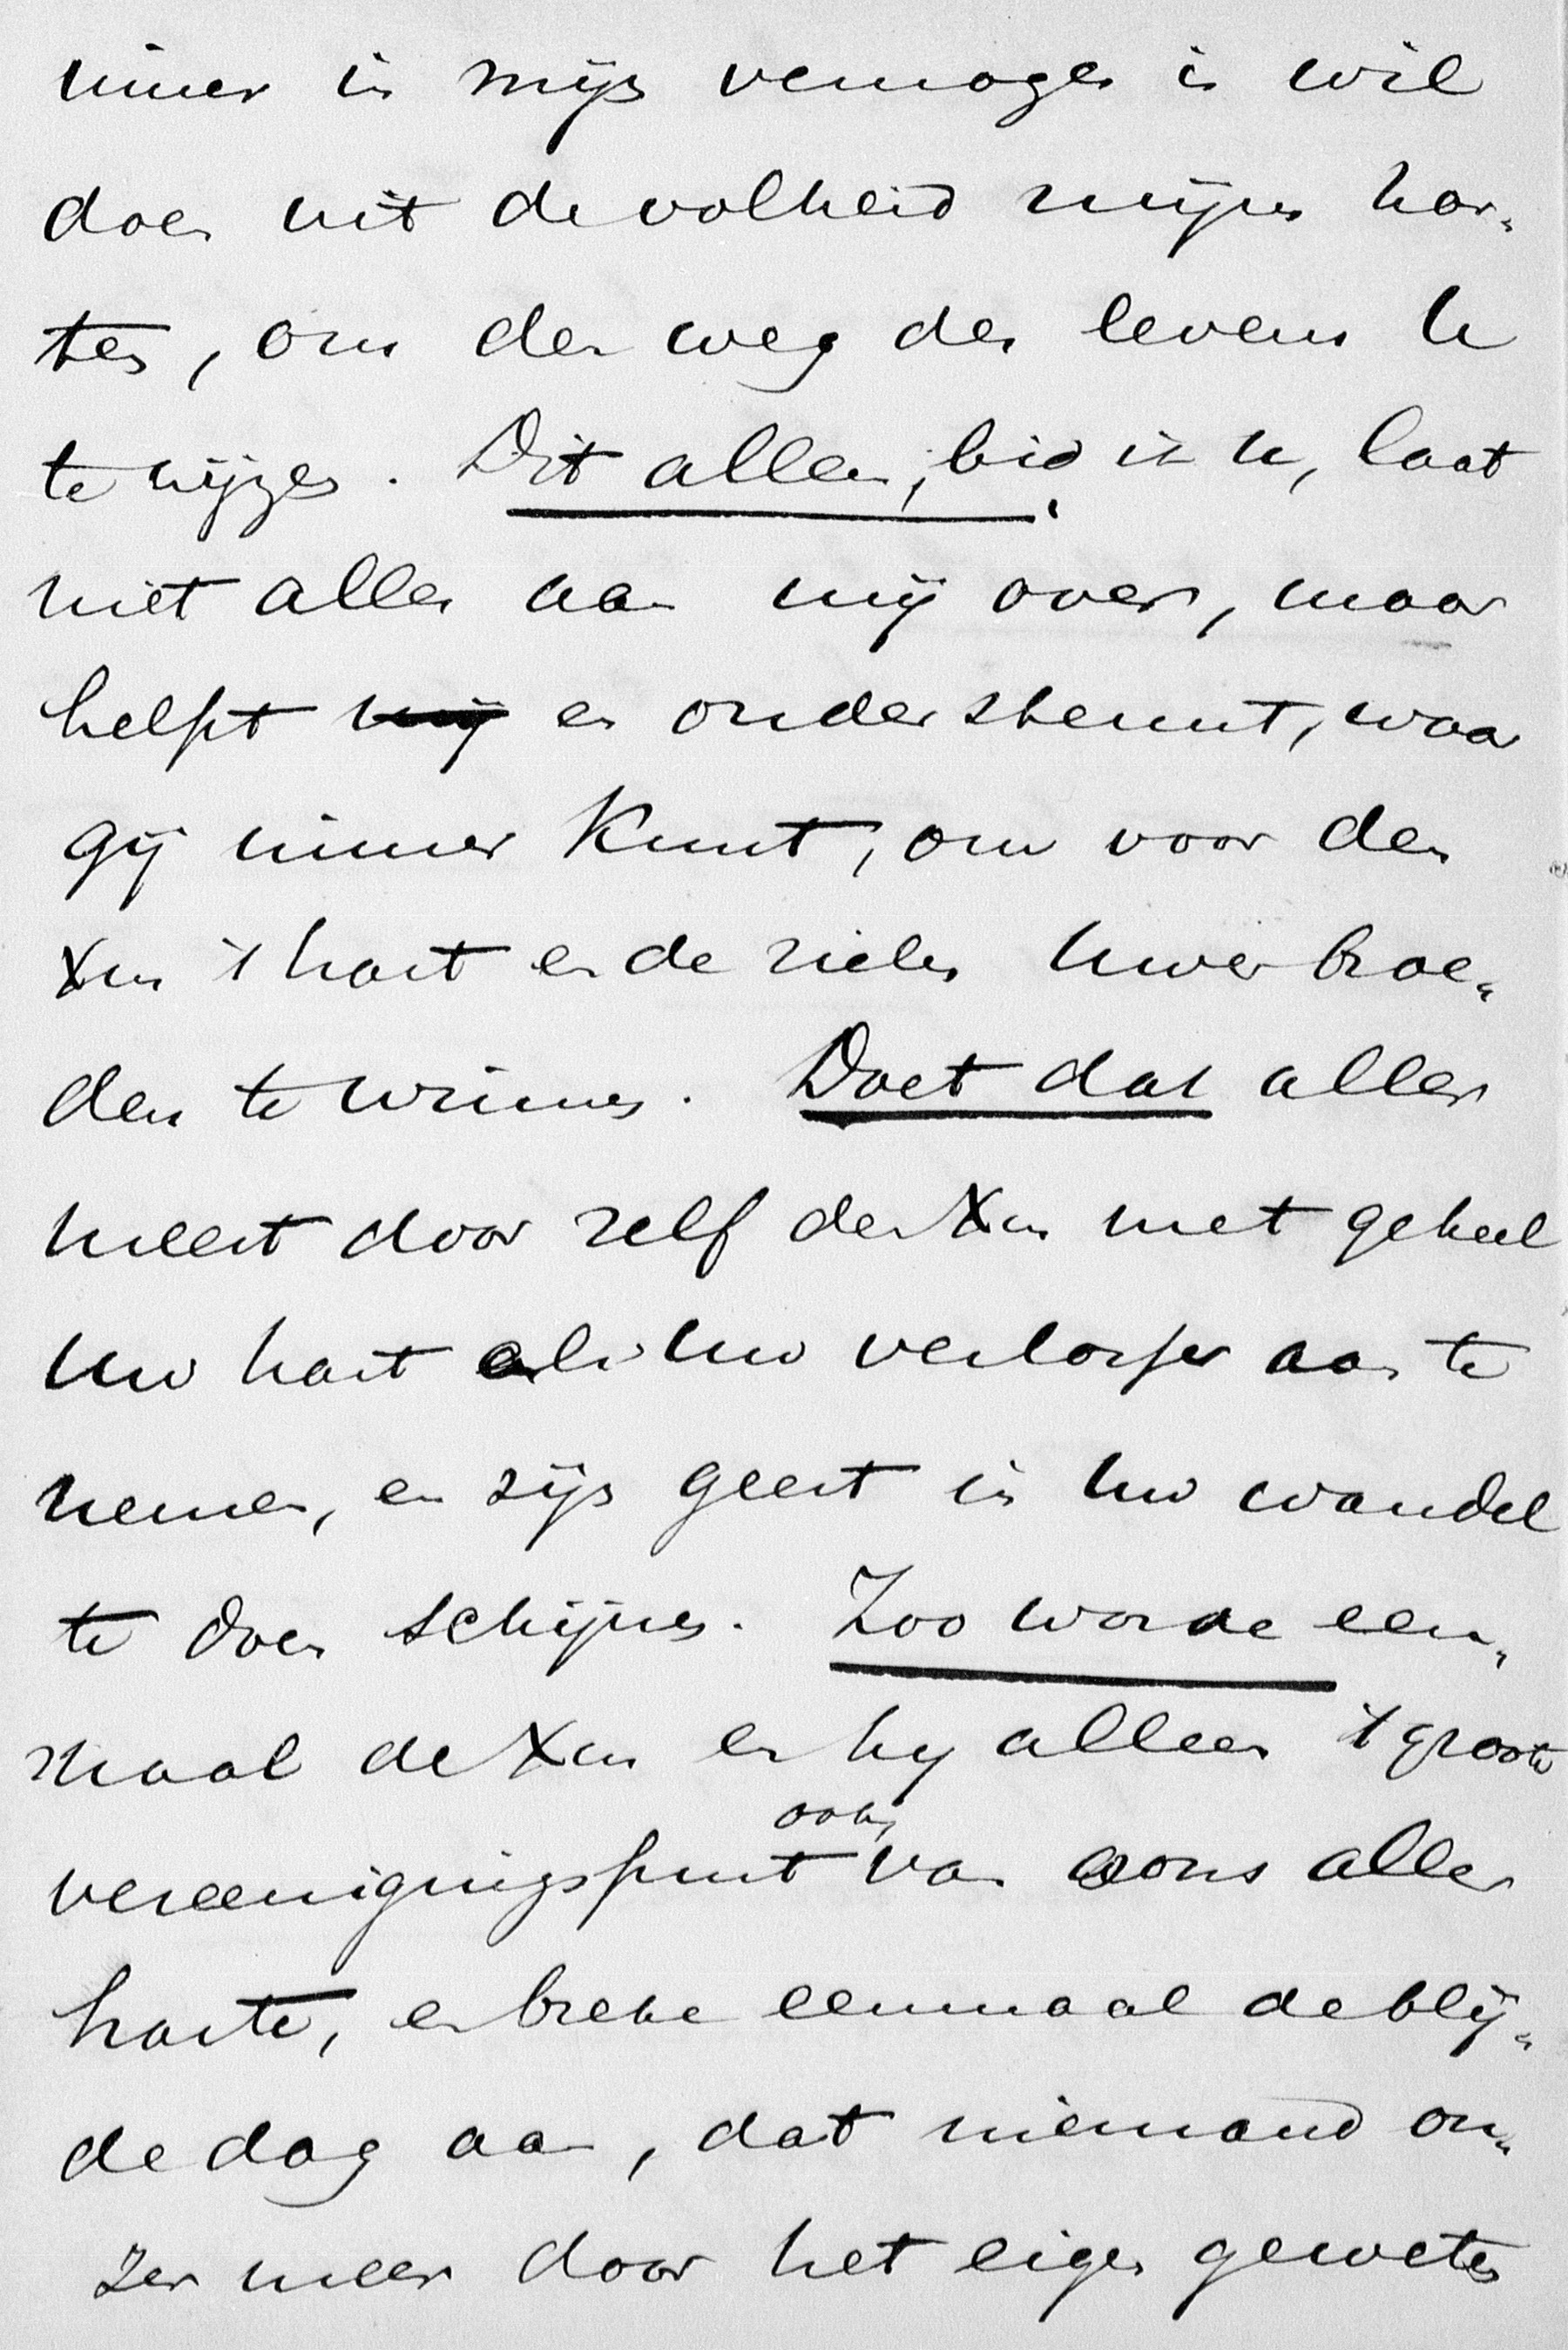 immer in mijn vermogen is wil
doen uit de volheid mijns har-
ten, om den weg des levens U
te wijzen. Dit alles, bid ik u, laat
niet alles aan mij over, maar
helpt mij en ondersteunt, waar
gij immer kunt, om voor den
Xus 't hart en de zielen Uwer broe-
deren te winnen. Doet dat alles
meest door zelf den Xus met geheel
Uw hart als Uw verlosser aan te
nemen, en zijn geest in Uw wandel
te doen schijnen. Zoo worde een-
maal de Xus en hij alleen 't groote
vereenigingspunt ook van ons aller
harte, en breke eenmaal de blij-
de dag aan, dat niemand on-
zer meer door het eigen geweten